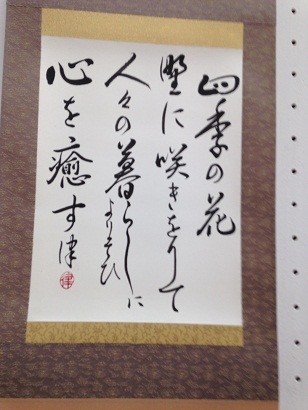 四季の花
野に咲きをりて
人々の暮らしに
よりそひ
心を癒す津